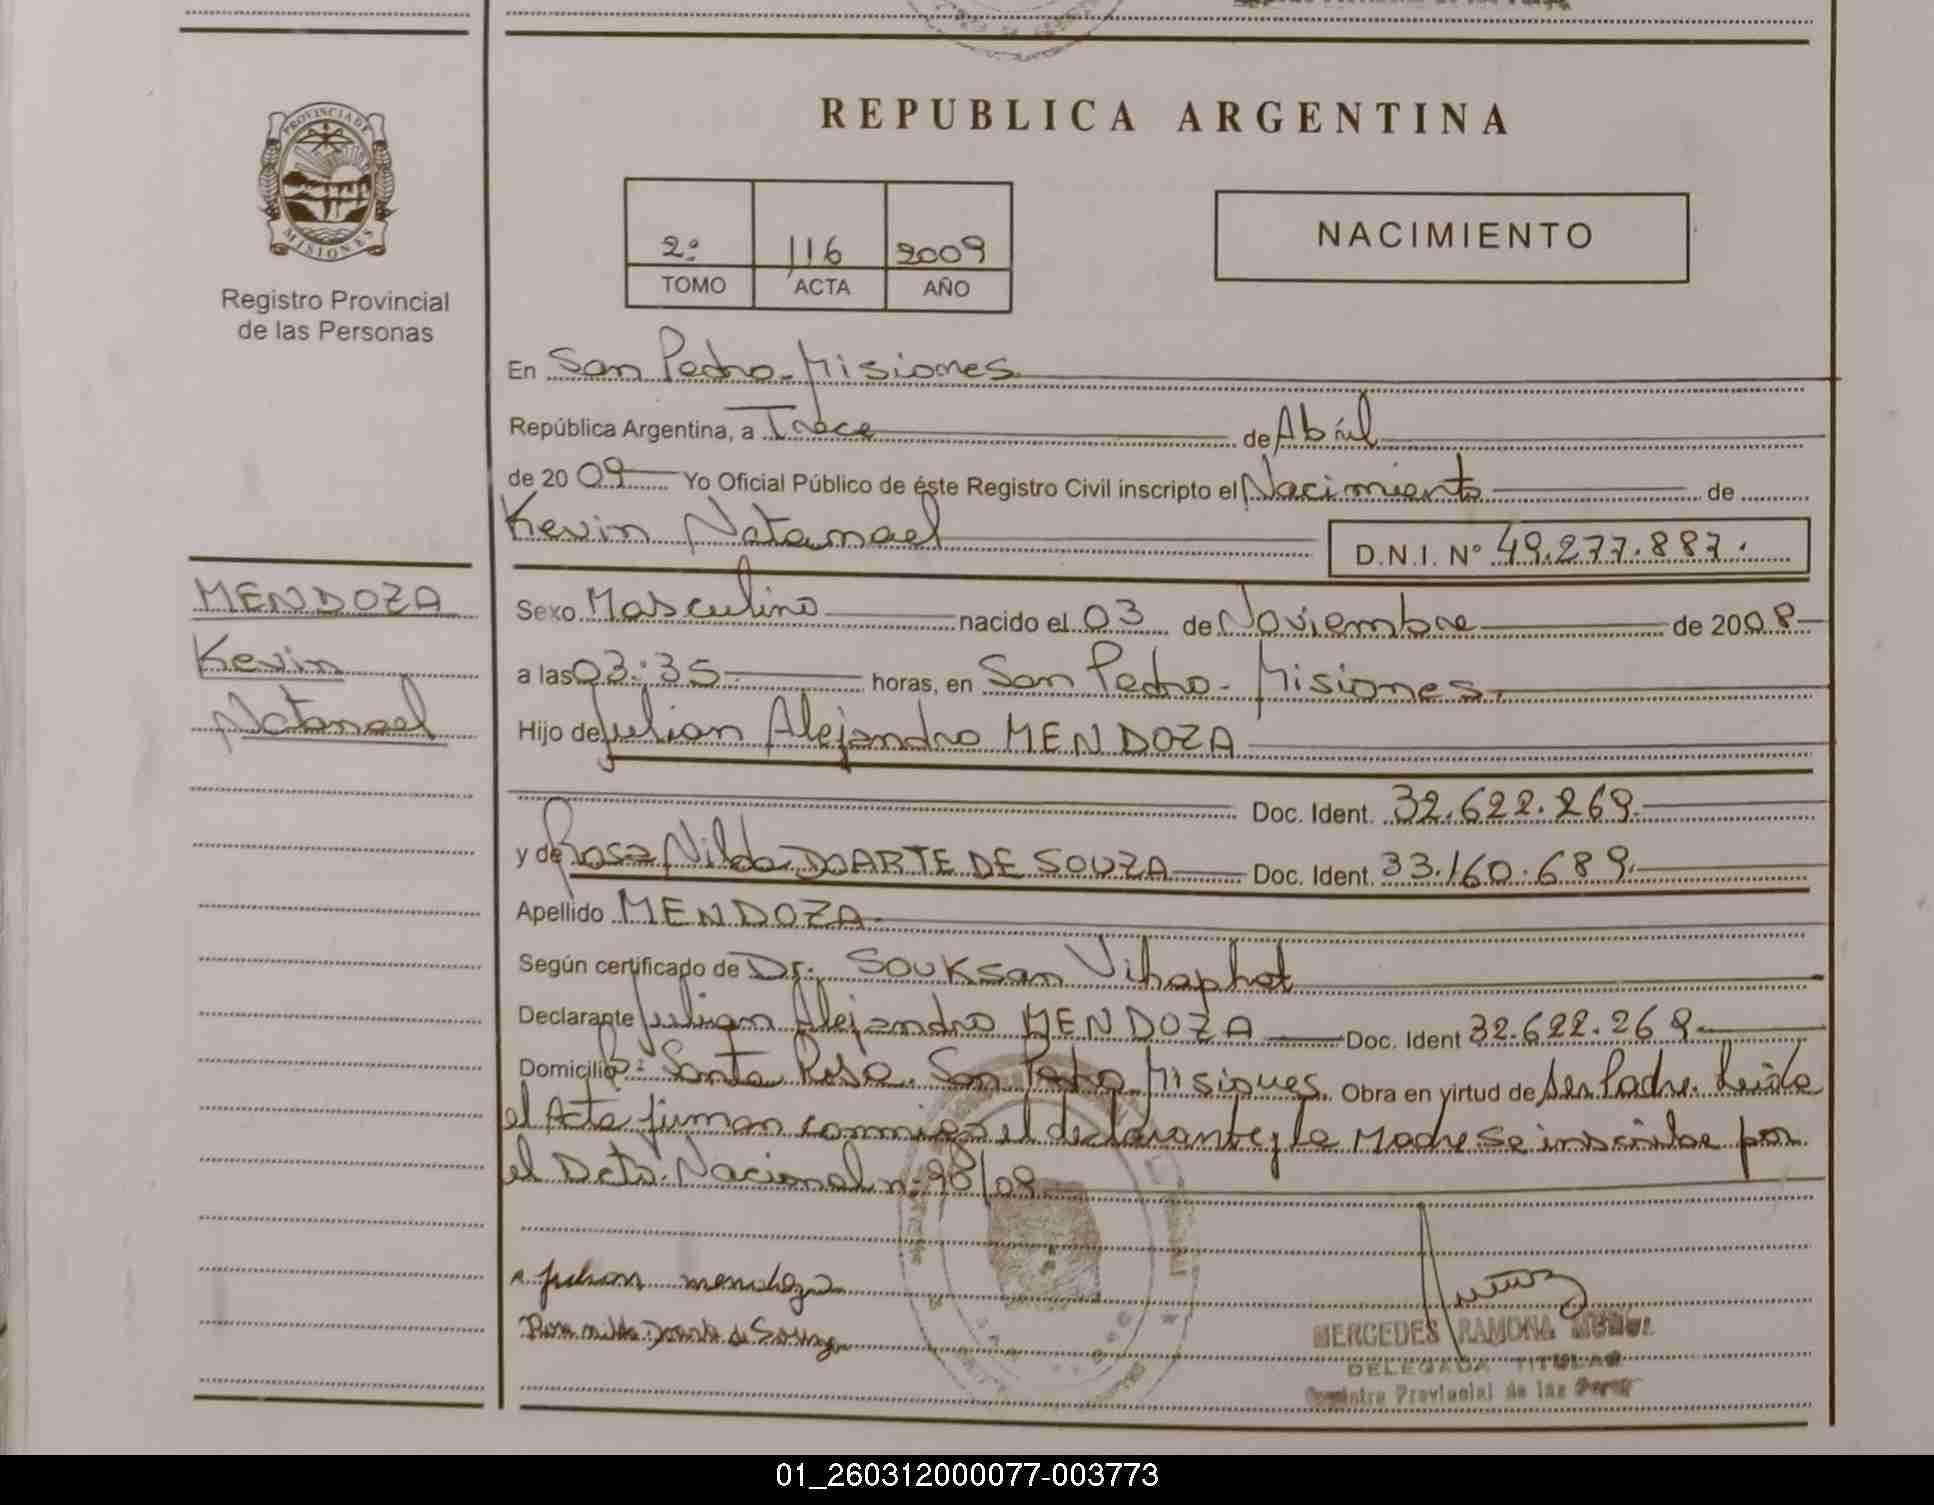 REPUBLICA ARGENTINA
PROVINCIA DE
MISIONES
Registro Provincial
de las Personas
2º 116 2009
TOMO ACTA AÑO
NACIMIENTO
En San Pedro - Misiones
República Argentina, a Trece de Abril
de 2009 Yo Oficial Público de éste Registro Civil inscripto el Nacimiento de
Kevin Natanael
D.N.I. Nº 49.277.887.
MENDOZA
Kevin
Natanael
Sexo Masculino nacido el 03 de Noviembre de 2008
a las 03:35 horas, en San Pedro - Misiones.
Hijo de Julian Alejandro MENDOZA
Doc. Ident. 32.622.269.
y de Rosa Nilda DOARTE DE SOUZA Doc. Ident. 33.160.689.
Apellido MENDOZA
Según certificado de Dr. SOUKSan Vihaphat
Declarante Julian Alejandro MENDOZA Doc. Ident 32.622.269.
Domicilio: Santa Rosa. San Pedro Misiones. Obra en virtud de ser Padre. Leída
el Acta firman conmigo el declarante y la Madre se inscribe por
el Dcto. Nacional nº 90/09
Julian mendoza
Rosa nilda Doarte de Souza
MERCEDES RAMONA
DELEGADA TITULAR
Registro Provincial de las
01_260312000077-003773